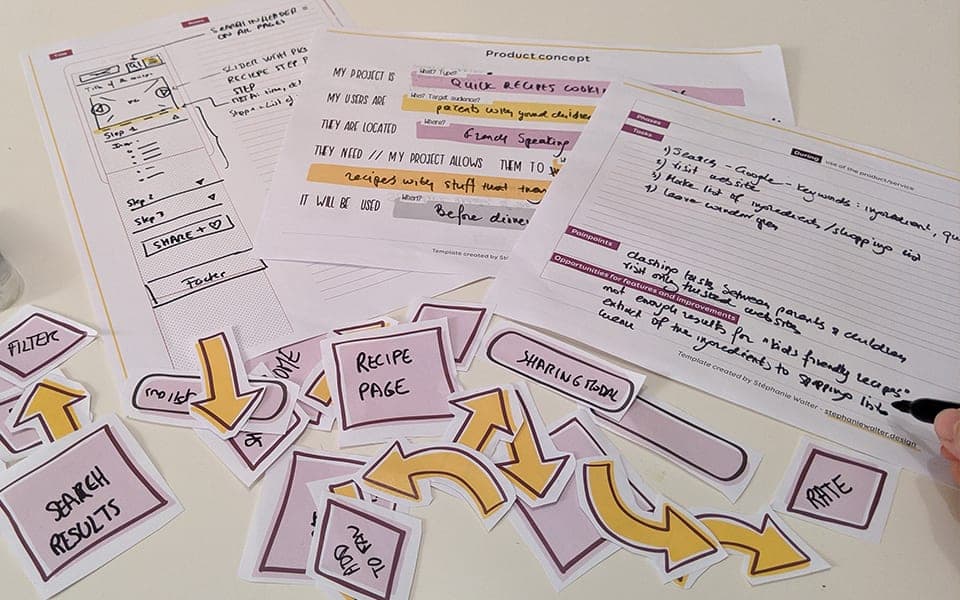 SEARCH IN HEADER
ON ALL PAGES
SLIDER WITH
RECIPE STEP
STEP
Step 1
Step 2
Step 3
SHARE + ♡
Footer
Product concept
MY PROJECT IS
What? Type?
QUICK RECIPES
MY USERS ARE
Who? Target audience?
parents with young children
THEY ARE LOCATED
Where?
French Speaking
THEY NEED // MY PROJECT ALLOWS THEM TO
recipes with stuff that
IT WILL BE USED
When?
Before dinner
Template created by
Phases
During use of the product/service
Tasks
1) Search - Google - keywords: ingredient,
2) Visit website
3) Make list of ingredients / shopping list
4) Leave
Painpoints
clashing taste between parents & children
visit only trusted website
Opportunities for features and improvements
not enough results for "kids friendly recipes"
extract of the ingredients to shopping list
Template created by Stéphanie Walter - stephaniewalter.design
FILTER
RECIPE
PAGE
SHARING TODAL
SEARCH
RESULTS
ADD
TO
RATE